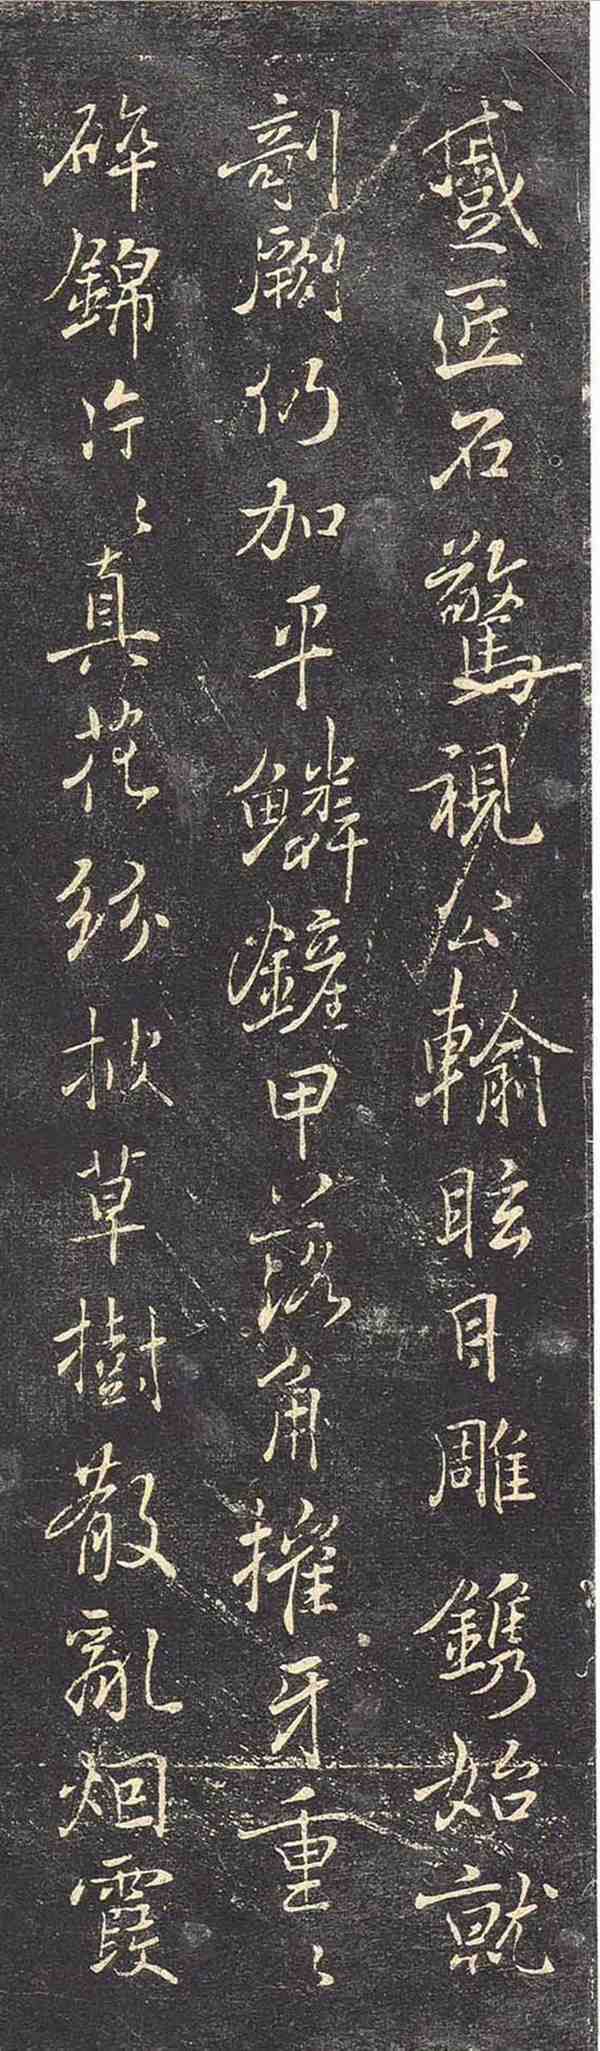 蹙匠石驚視公輸眩目雕鐫始就
剞劂仍加平鱗鏟甲落角摧牙重〻
碎錦片〻真花紛披草樹散亂烟霞